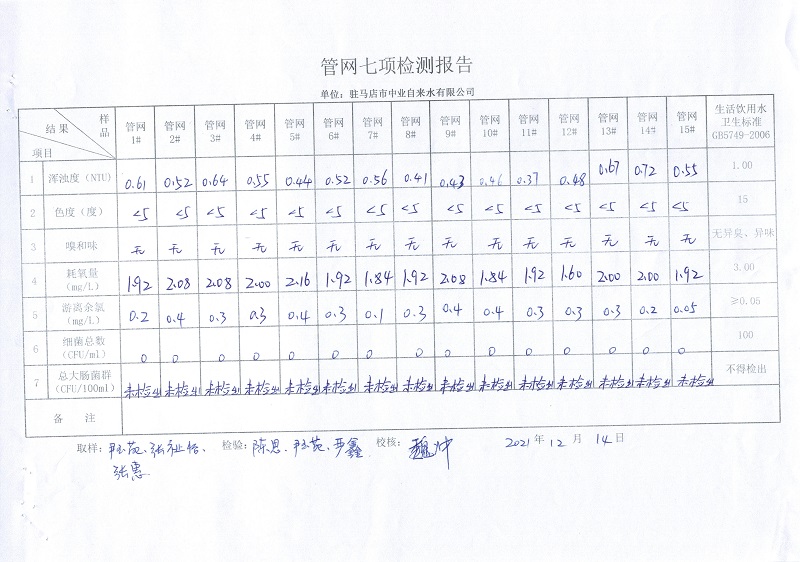 管网七项检测报告
单位：驻马店市中业自来水有限公司
结果 样品 项目 管网1# 管网2# 管网3# 管网4# 管网5# 管网6# 管网7# 管网8# 管网9# 管网10# 管网11# 管网12# 管网13# 管网14# 管网15# 生活饮用水卫生标准GB5749-2006
1 浑浊度（NTU） 0.61 0.52 0.64 0.55 0.44 0.52 0.56 0.41 0.43 0.46 0.37 0.48 0.67 0.72 0.55 1.00
2 色度（度） <5 <5 <5 <5 <5 <5 <5 <5 <5 <5 <5 <5 <5 <5 <5 15
3 嗅和味 无 无 无 无 无 无 无 无 无 无 无 无 无 无 无 无异臭、异味
4 耗氧量（mg/L） 1.92 2.08 2.08 2.00 2.16 1.92 1.84 1.92 2.08 1.84 1.92 1.60 2.00 2.00 1.92 3.00
5 游离余氯（mg/L） 0.2 0.4 0.3 0.3 0.4 0.3 0.1 0.3 0.4 0.4 0.3 0.3 0.3 0.2 0.05 ≥0.05
6 细菌总数（CFU/ml） 0 0 0 0 0 0 0 0 0 0 0 0 0 0 0 100
7 总大肠菌群（CFU/100ml） 未检出 未检出 未检出 未检出 未检出 未检出 未检出 未检出 未检出 未检出 未检出 未检出 未检出 未检出 未检出 不得检出
备 注
取样： 检验：陈思、 校核： 2021年12月14日
张惠